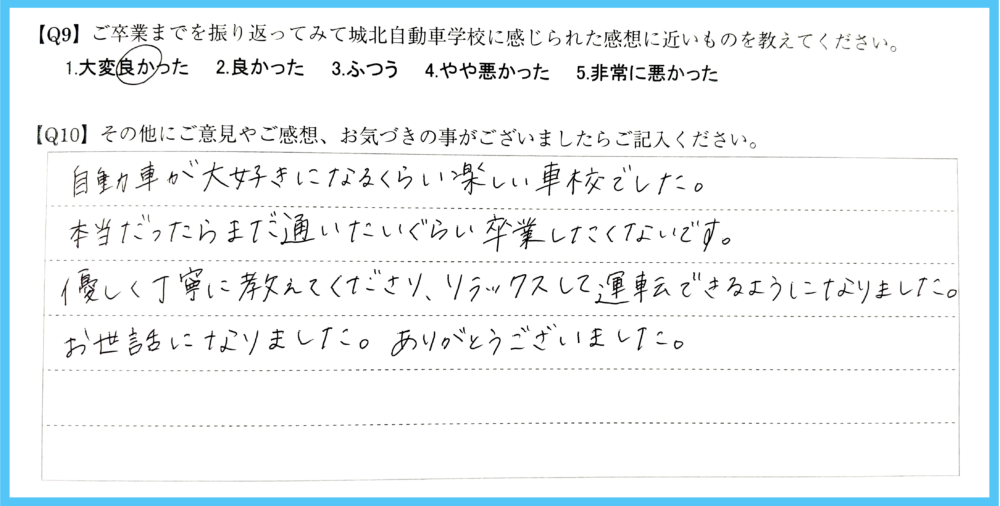 【Q9】ご卒業までを振り返ってみて城北自動車学校に感じられた感想に近いものを教えてください。
1.大変良かった 2.良かった 3.ふつう 4.やや悪かった 5.非常に悪かった
【Q10】その他にご意見やご感想、お気づきの事がございましたらご記入ください。
自動車が大好きになるくらい楽しい車校でした。
本当だったらまだ通いたいぐらい卒業したくないです。
優しく丁寧に教えてくださり、リラックスして運転できるようになりました。
お世話になりました。ありがとうございました。